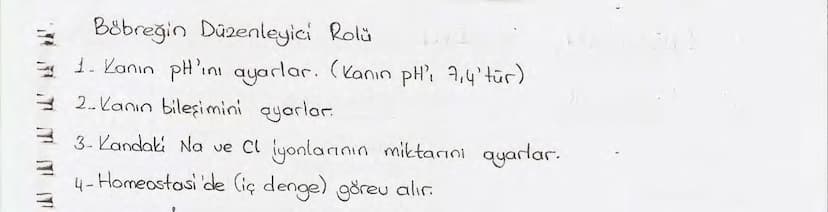 Böbreğin Düzenleyici Rolü
1- Kanın pH'ını ayarlar. (Kanın pH'ı 7,4'tür)
2- Kanın bileşimini ayarlar.
3- Kandaki Na ve Cl iyonlarının miktarını ayarlar.
4- Homeostasi'de (iç denge) görev alır.